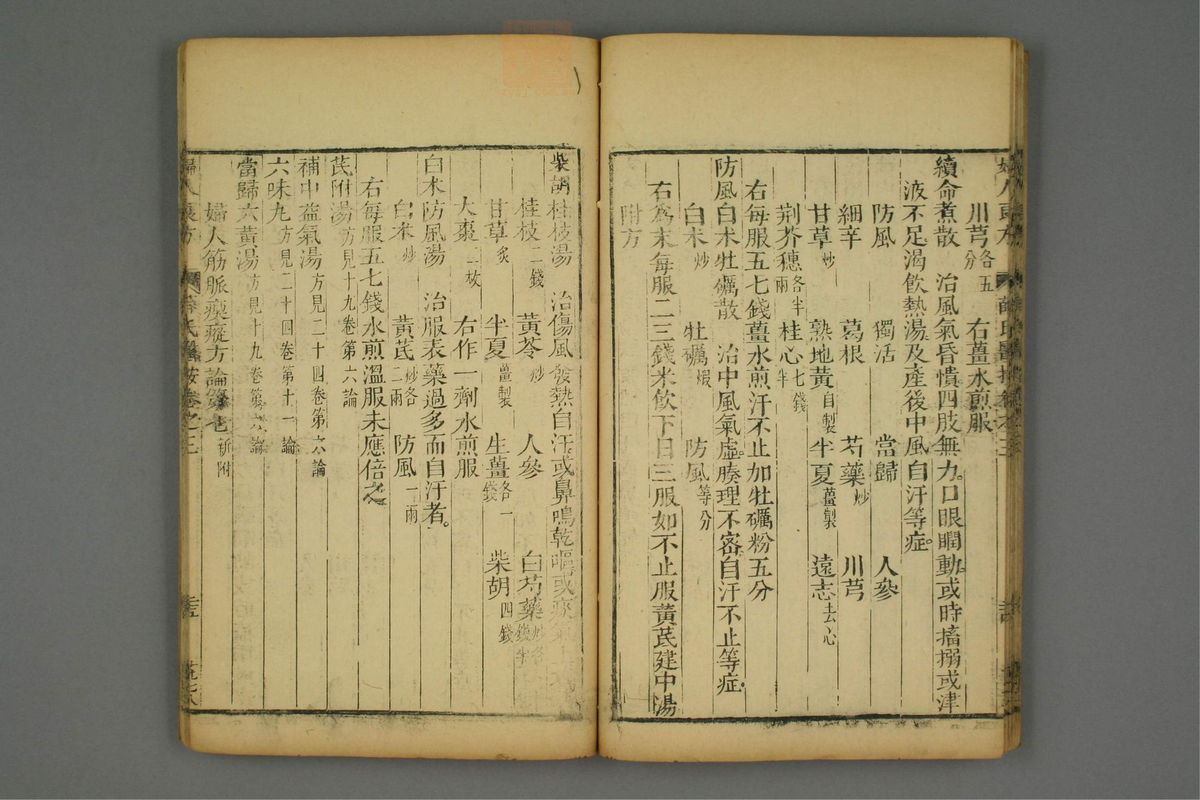 川芎各五分　右薑水煎服
續命煮散　治風氣昏憒四肢無力口眼瞤動或時搐搦或津
液不足渴飲熱湯及產後中風自汗等症
防風　獨活　當歸　人參
細辛　葛根　芍藥炒　川芎
甘草炒　熟地黃自製　半夏薑製　遠志去心
荆芥穗各半兩　桂心七錢半
右每服五七錢薑水煎汗不止加牡礪粉五分
防風白朮牡礪散　治中風氣虛腠理不密自汗不止等症
白朮炒　牡礪煆　防風等分
右為末每服二三錢米飲下日三服如不止服黃芪建中湯
附方
柴胡桂枝湯　治傷風發熱自汗或鼻鳴乾嘔或痰氣
桂枝一錢　黃芩炒　人參　白芍藥炒各錢半
甘草炙　半夏薑製　生薑各一錢　柴胡四錢
大棗二枚　右作一劑水煎服
白朮防風湯　治服表藥過多而自汗者
白朮炒　黃芪炒各二兩　防風一兩
右每服五七錢水煎溫服未應倍之
芪附湯方見十九卷第六論
補中益氣湯方見二十四卷第六論
六味丸方見二十四卷第十一論
當歸六黃湯方見十九卷第六論
婦人筋脈瘈瘲方論第七新附
婦人良方　薛氏醫按卷之三